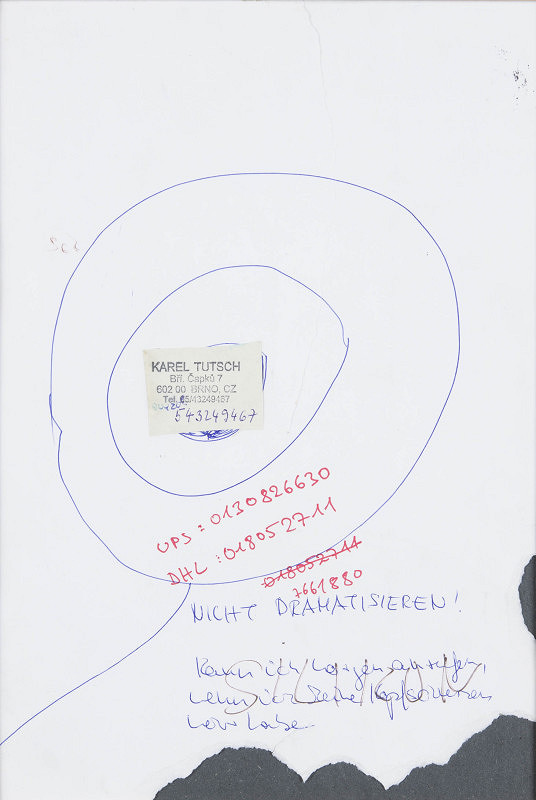 KAREL TUTSCH
Bří. Čapků 7
602 00 BRNO, CZ
Tel. 05/43249467
543249467
UPS: 0130826630
DHL: 018052711
018052711
7661880
NICHT DRAMATISIEREN!
Kann ich morgen anrufen,
wenn ich keine Kopfschmerzen
mehr habe.